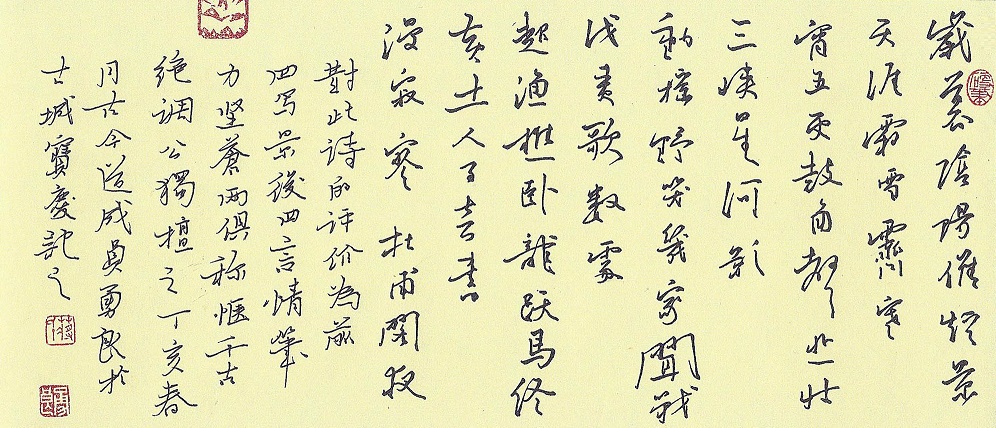 歲暮陰陽催短景
天涯霜雪霽寒
宵五更鼓角聲悲壯
三峡星河影
動摇野哭幾家聞戰
伐夷歌數處
起漁樵卧龍跃馬终
黄土人事音書
漫寂寥 杜甫閣夜
對此詩的评价為前
四写景後四言情筆
力坚蒼两俱称惬千古
绝调公獨擅之丁亥春
月古今道成員勇良於
古城寶慶記之